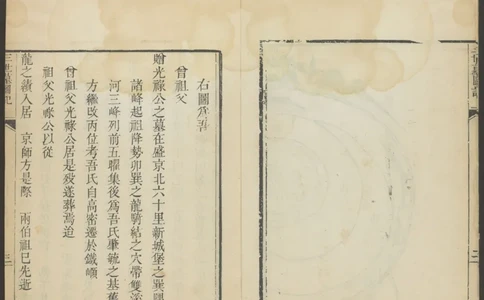 右圖為吾
曾祖父
贈光祿公之墓在盛京北六十里新城堡之巽
諸峰起祖降勢卯巽之龍騎結之穴帶雙
河三峰列前五曜集後為吾氏肇毓之基
方繼改丙位考吾氏自高密遷於鐵嶺
曾祖父光祿公居是歿遂葬焉迨
祖父光祿公以從
龍之績入居 京師方是際 兩伯祖已先逝
三